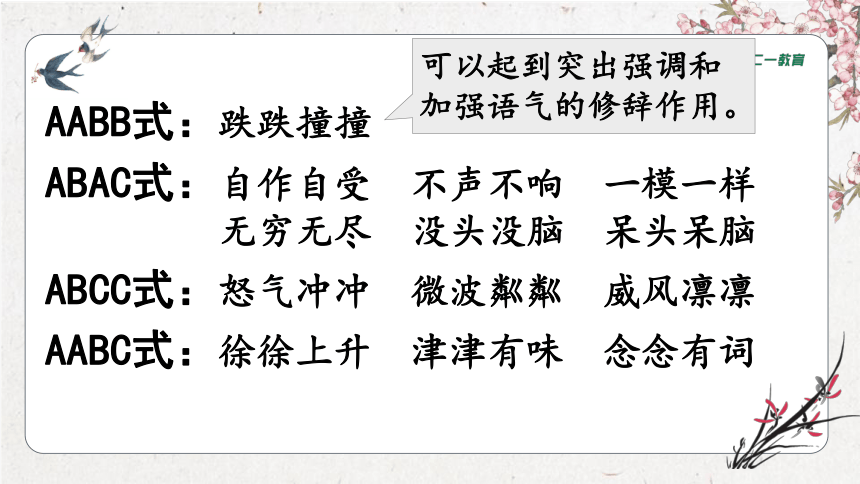 可以起到突出强调和
加强语气的修辞作用。
二一教育
AABB式：跌跌撞撞
ABAC式：自作自受 不声不响 一模一样
无穷无尽 没头没脑 呆头呆脑
ABCC式：怒气冲冲 微波粼粼 威风凛凛
AABC式：徐徐上升 津津有味 念念有词